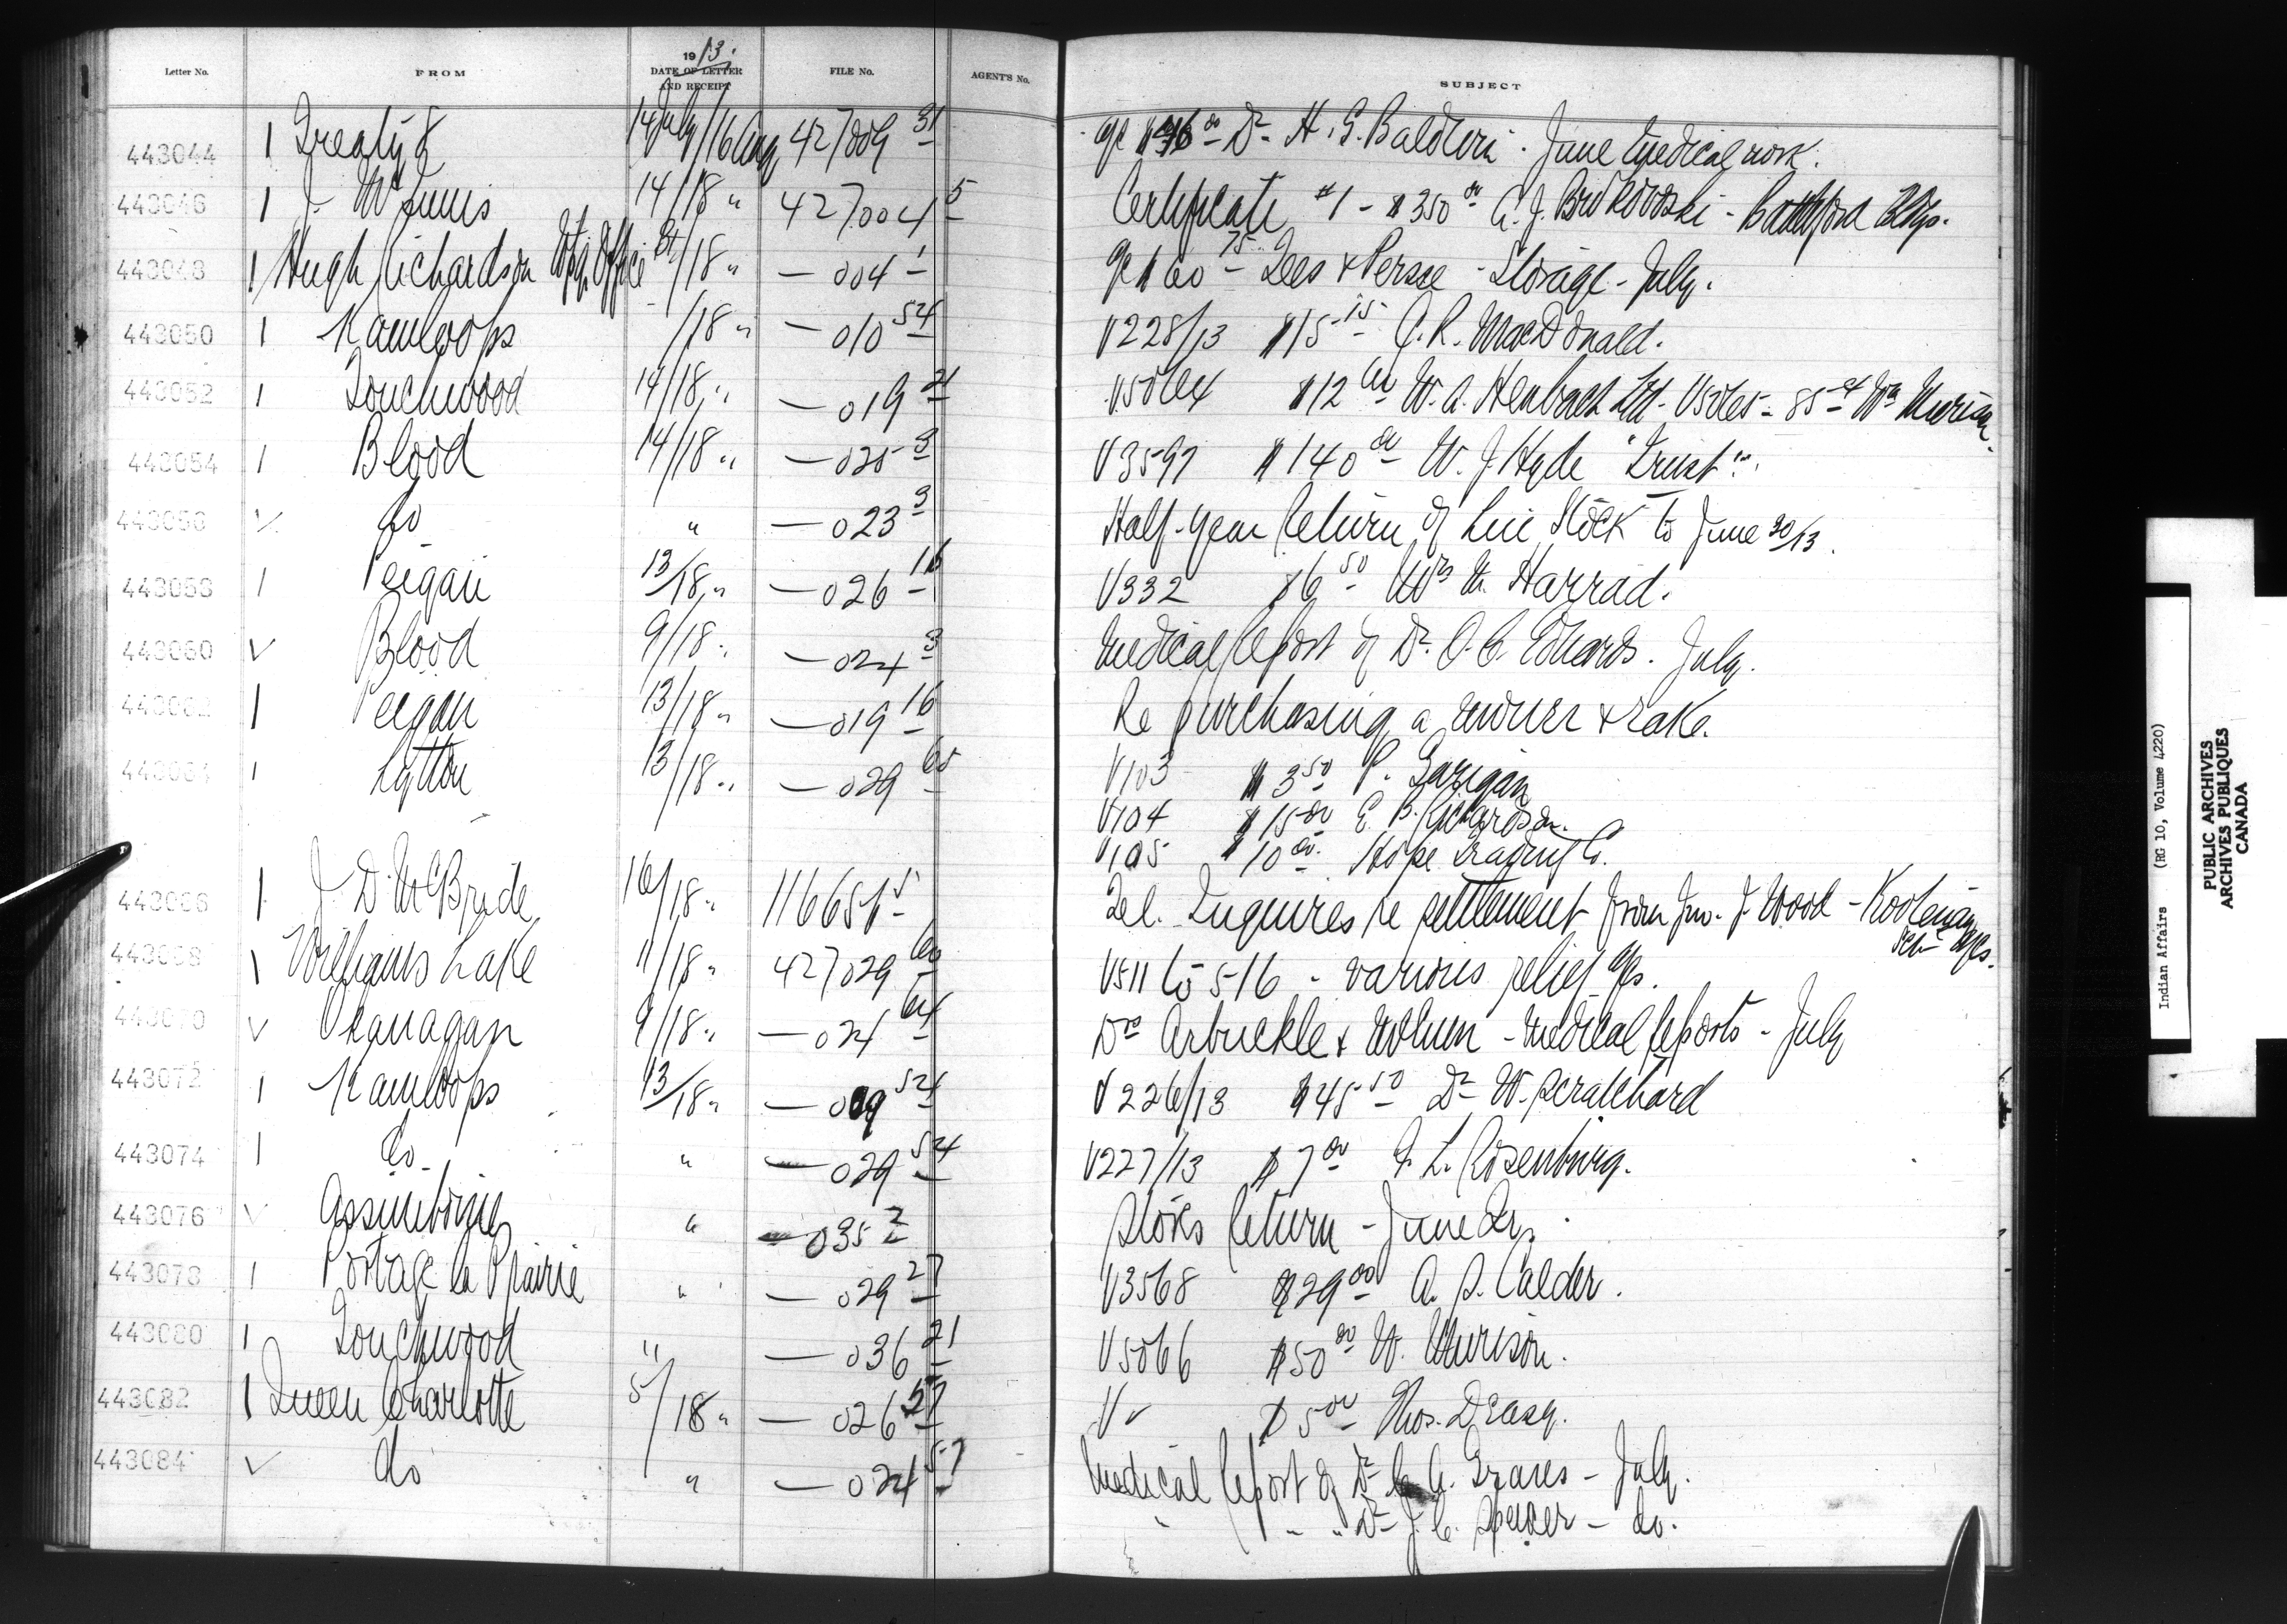 Letter No. FROM 1913. DATE OF LETTER AND RECEIPT FILE No. AGENT'S No. SUBJECT
443044 1 Treaty 8 14 July/16 Aug 427009 31 a/c $ 00 Dr. H. G. Baldwin - June Medical work.
443046 1 J. McInnis 14/18 " 427004 5 Certificate #1 - $350 00 - Battleford Bldgs.
443048 1 Hugh Richardson Wpg. Office /18 " — 004 1 a/c $60 75 Lees & Persse - Storage - July.
443050 1 Kamloops /18 " — 010 54 V228/13 $15 15 C. R. MacDonald.
443052 1 Touchwood 14/18 " — 019 21 V5064 $12 W. A. Ltd - V5065 - 85 cts Wm Murison
443054 1 Blood 14/18 " — 025 3 V3597 $140 00 W. J. Hyde "Trust".
443056 ✓ do " — 023 3 Half-year Return of Live Stock to June 30/13.
443058 1 Peigan 13/18 " — 026 16 V332 $6 50 Harrad.
443060 ✓ Blood 9/18 " — 024 3 Medical Report of Dr. O. C. Edwards. July.
443062 1 Peigan 13/18 " — 019 16 Re purchasing a mower & rake.
443064 1 Lytton 13/18 " — 029 65 V103 $3 50 P. Garigan
V104 $15 00 E. B. Richardson.
V105 $10 00 Hope Trading Co.
443066 1 J. D. McBride 16/18 " 116651 Tel. Inquires re settlement from Jno. J. Wood - Kootenay
443068 1 Williams Lake 11/18 " 427029 60 V511 to 516 - various relief a/cs.
443070 ✓ Okanagan 9/18 " — 024 64 Drs Arbuckle & - Medical Reports - July
443072 1 Kamloops 13/18 " — 009 54 V226/13 $45 50 Dr W. Scratchard
443074 1 do " — 029 54 V227/13 $7 00 L. Rosenburg.
443076 ✓ Assiniboine " — 035 2 Stores Return - June Qr.
443078 1 Portage la Prairie " — 029 27 V3568 $29 00 A. S. Calder.
443080 1 Touchwood " — 036 21 V5066 $50 00 W. Murison.
443082 1 Queen Charlotte 5/18 " — 026 57 V ✓ $5 00 Thos. Deasy.
443084 ✓ do " — 024 57 Medical Report of Dr. A. Graves - July.
" " " Dr J. C. Spencer - do.
Indian Affairs (RG 10, Volume 4220)
PUBLIC ARCHIVES
ARCHIVES PUBLIQUES
CANADA